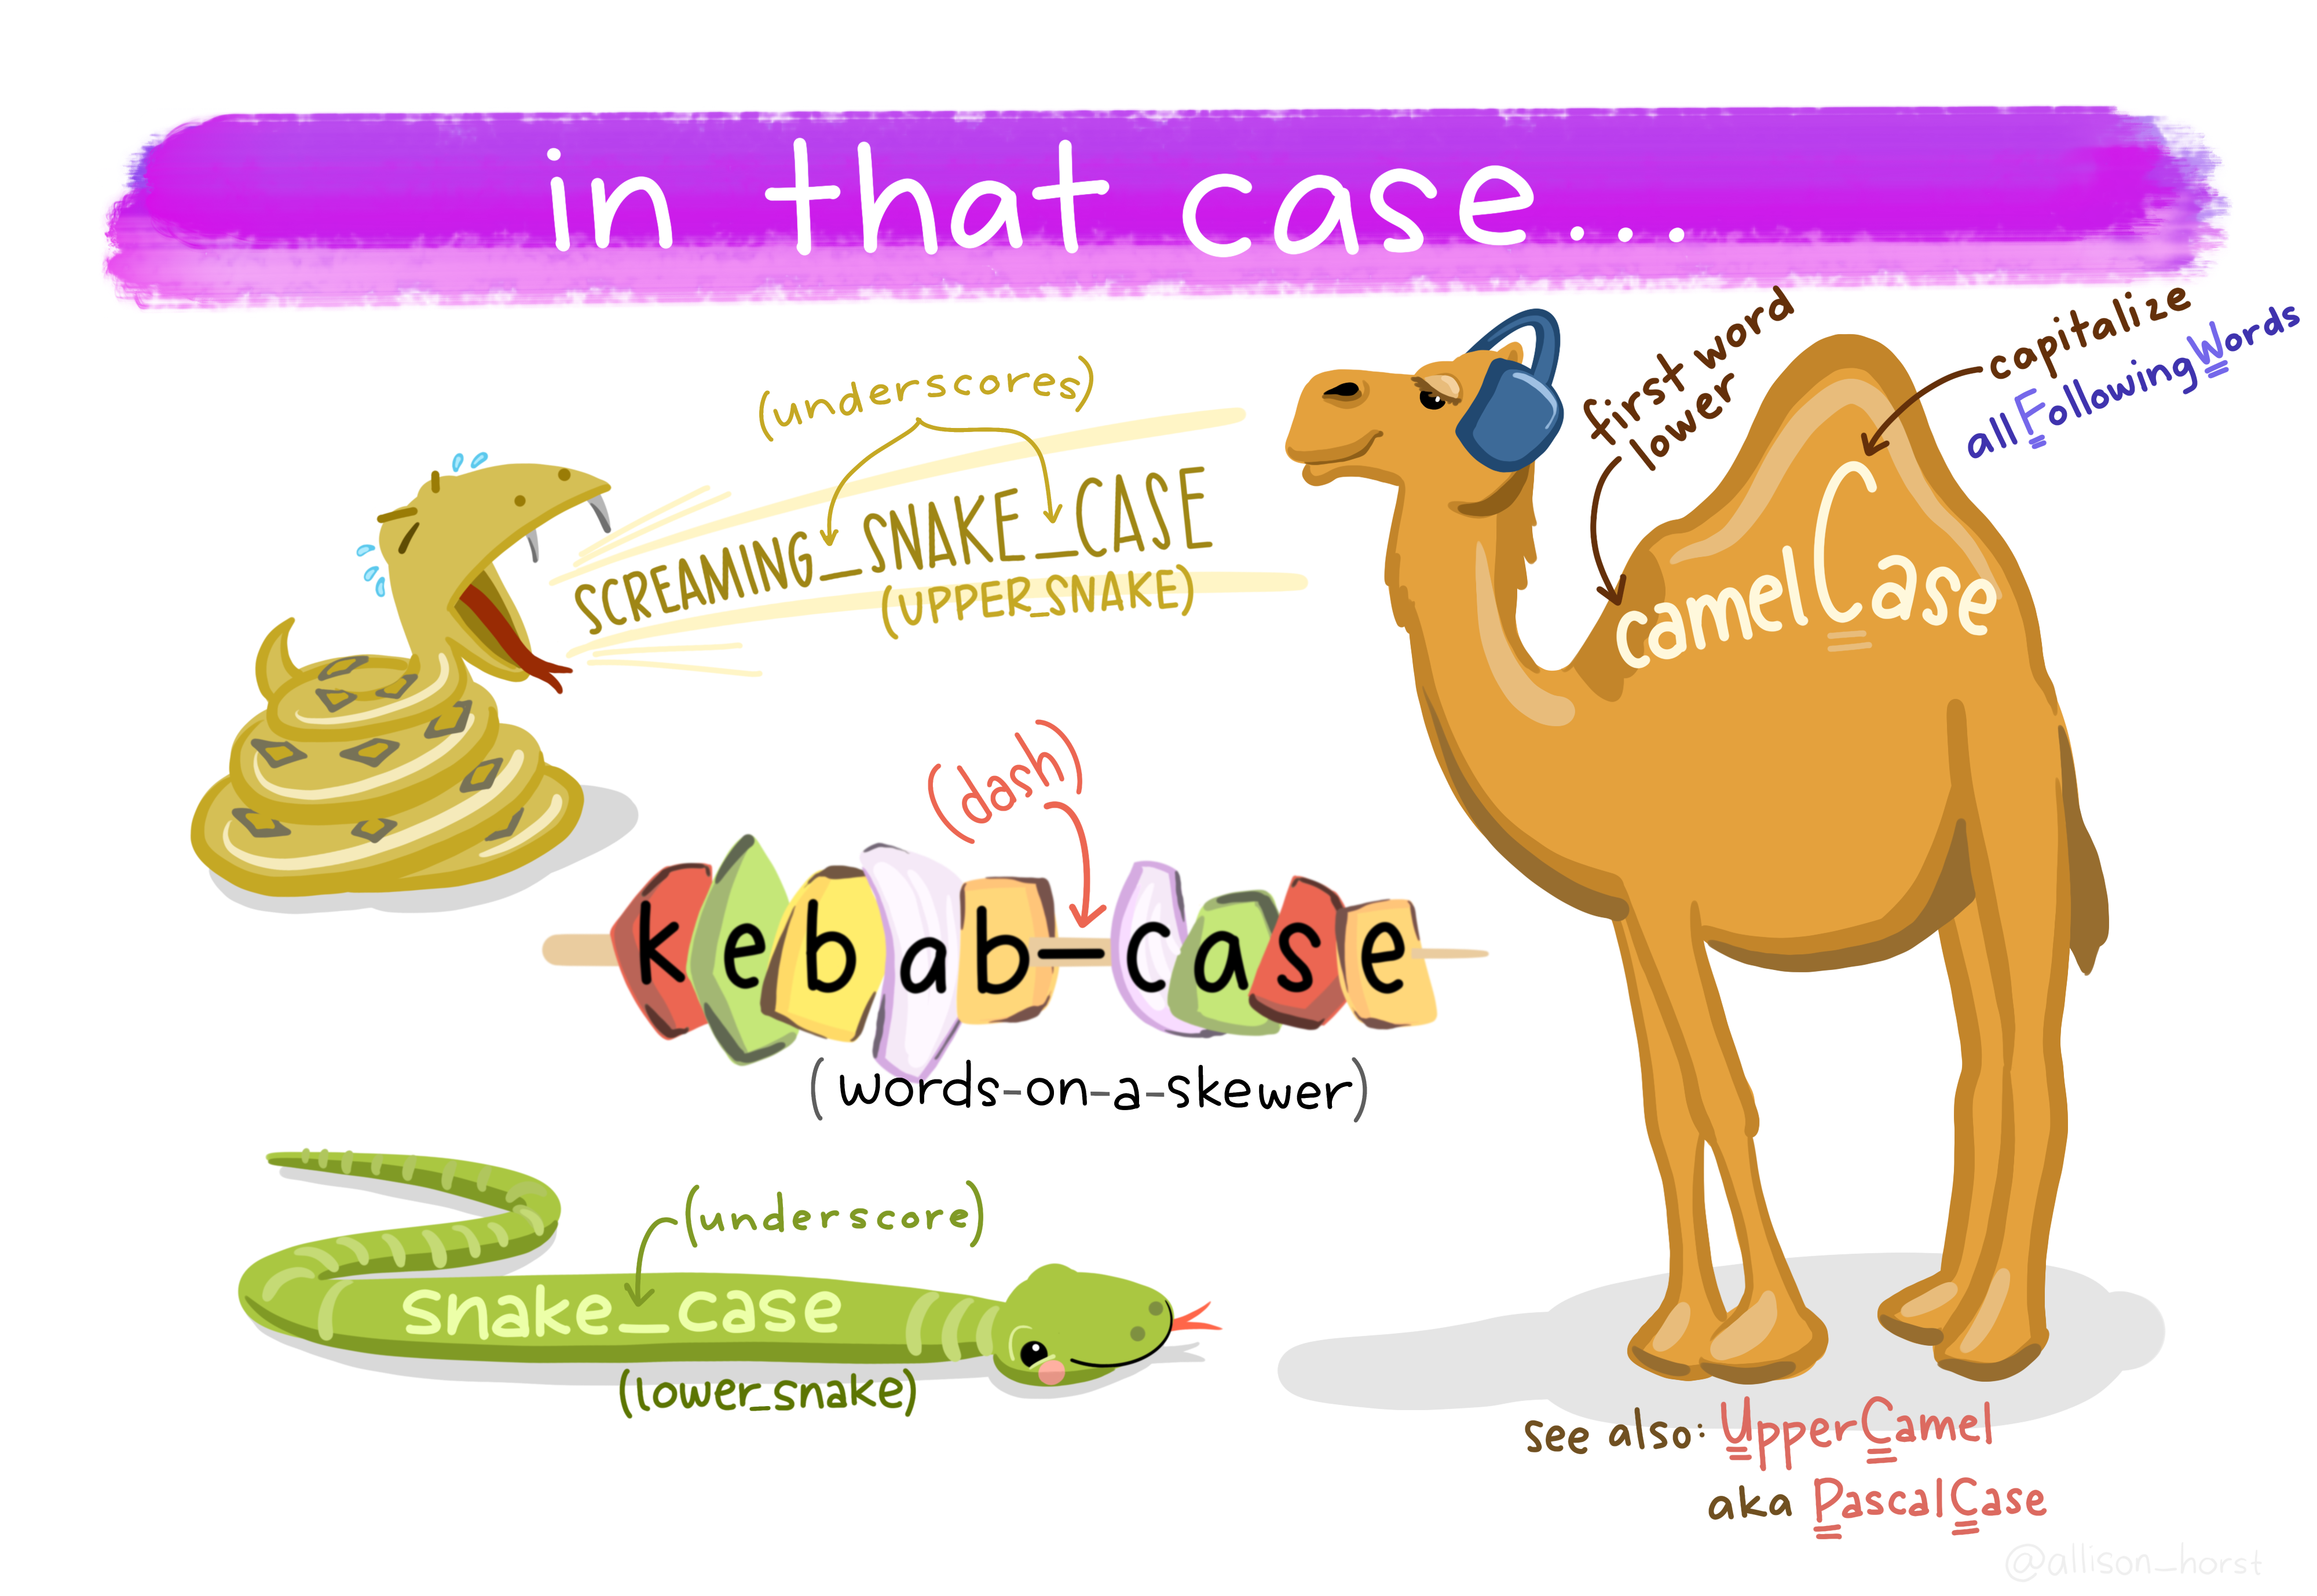 in that case...
(underscores)
SCREAMING_SNAKE_CASE
(UPPER_SNAKE)
first word
lower
capitalize
allFollowingWords
camelCase
(dash)
kebab-case
(words-on-a-skewer)
(underscore)
snake_case
(lower_snake)
see also: UpperCamel
aka PascalCase
@allison_horst